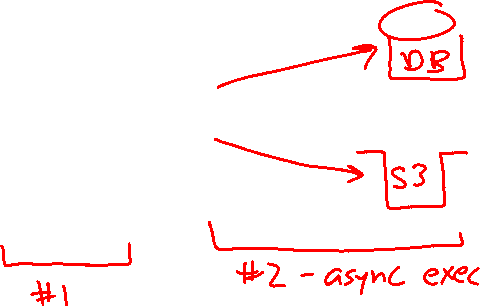 DB
S3
#1
#2 - async exec